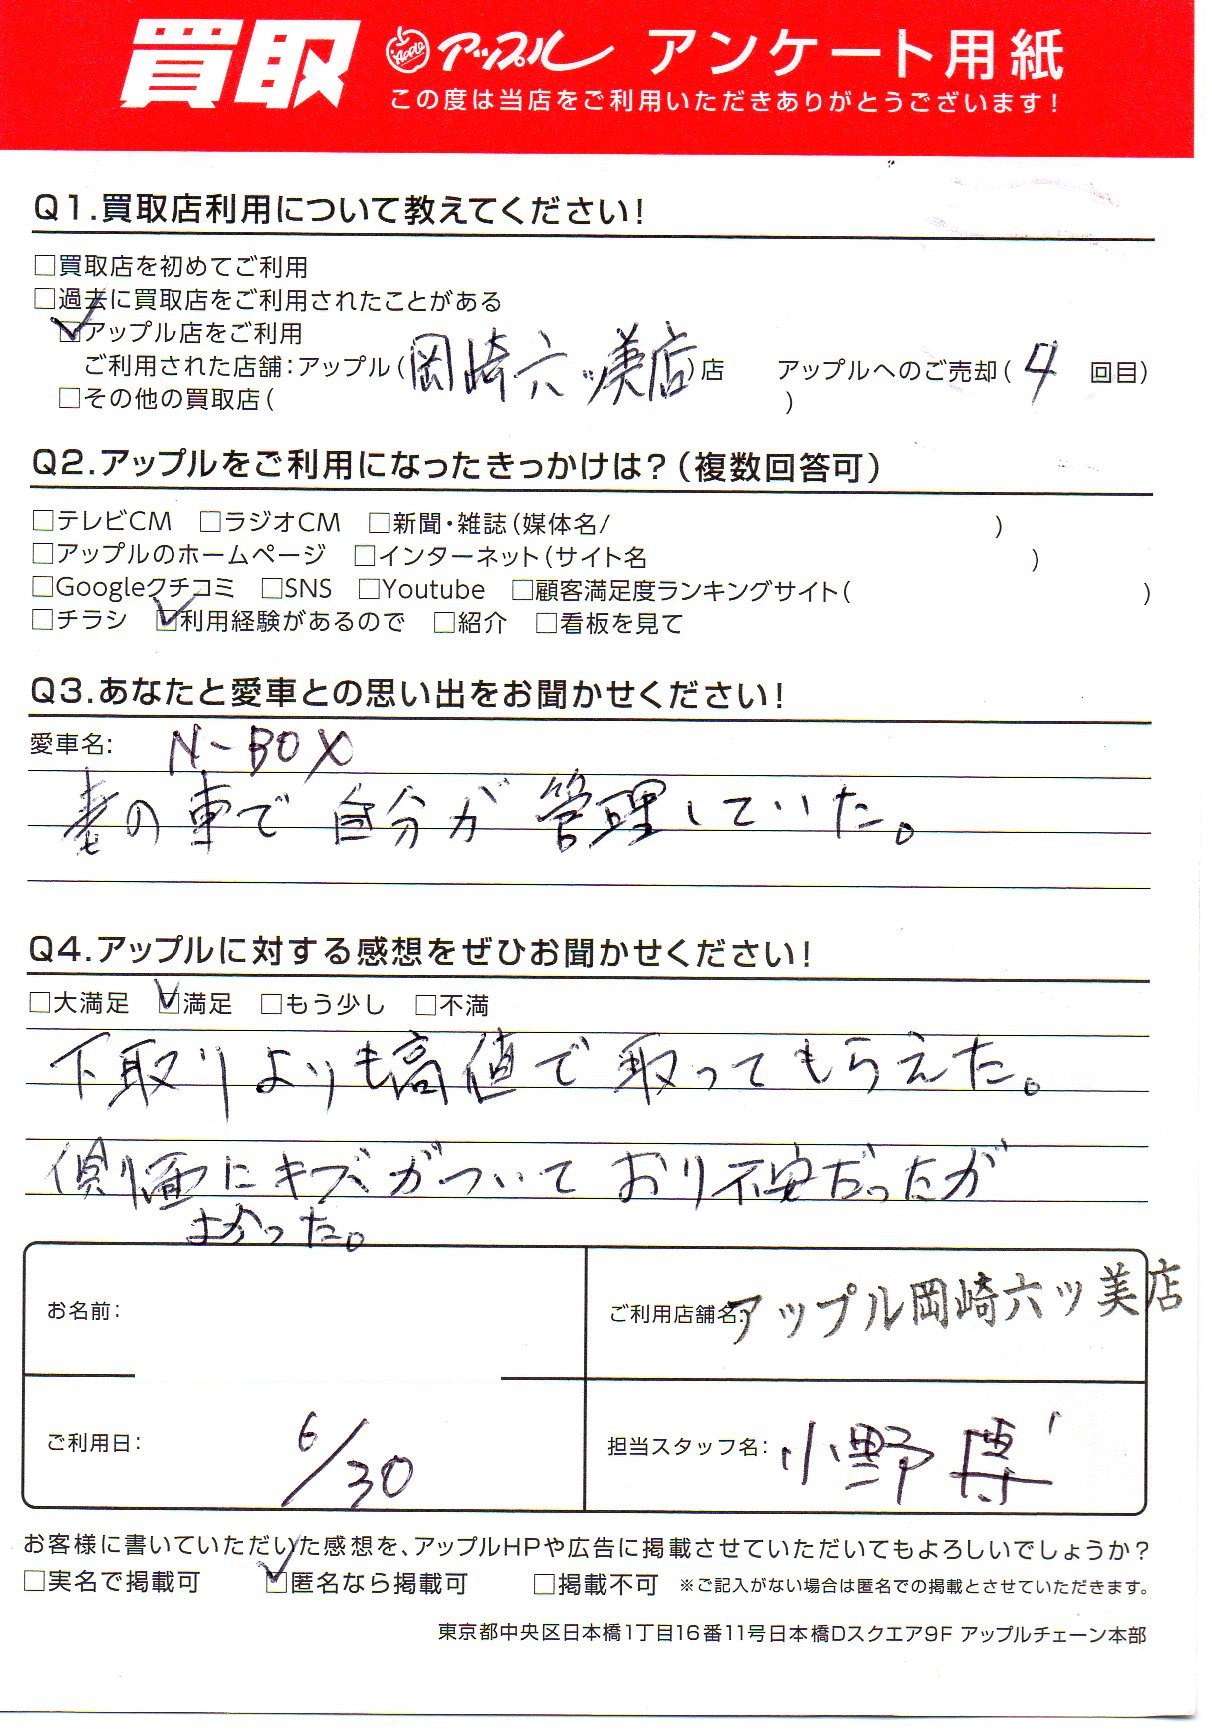 買取 Apple アップル アンケート用紙
この度は当店をご利用いただきありがとうございます!
Q1.買取店利用について教えてください!
□買取店を初めてご利用
□過去に買取店をご利用されたことがある
☑アップル店をご利用
ご利用された店舗:アップル(岡崎六ッ美店)店 アップルへのご売却(4 回目)
□その他の買取店( )
Q2.アップルをご利用になったきっかけは?(複数回答可)
□テレビCM □ラジオCM □新聞・雑誌(媒体名/ )
□アップルのホームページ □インターネット(サイト名 )
□Googleクチコミ □SNS □Youtube □顧客満足度ランキングサイト( )
□チラシ ☑利用経験があるので □紹介 □看板を見て
Q3.あなたと愛車との思い出をお聞かせください!
愛車名: N-BOX
妻の車で自分が管理していた。
Q4.アップルに対する感想をぜひお聞かせください!
□大満足 ☑満足 □もう少し □不満
下取りよりも高値で取ってもらえた。
側面にキズがついており不安だったが
よかった。
お名前:
ご利用店舗名: アップル岡崎六ッ美店
ご利用日: 6/30
担当スタッフ名: 小野 博
お客様に書いていただいた感想を、アップルHPや広告に掲載させていただいてもよろしいでしょうか?
□実名で掲載可 ☑匿名なら掲載可 □掲載不可 ※ご記入がない場合は匿名での掲載とさせていただきます。
東京都中央区日本橋1丁目16番11号日本橋Dスクエア9F アップルチェーン本部